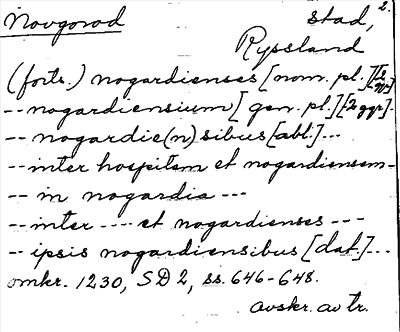 Novgorod stad, 2.
Ryssland
(forts.) nogardienses [nom. pl.] [2 ggr]
-- nogardiensium [gen. pl.] [2 ggr].
-- nogardie(n)sibus [abl.]...
-- inter hospitem et nogardiensem --
-- in nogardia ---
-- inter ---- et nogardienses ---
-- ipsis nogardiensibus [dat.]...
omkr. 1230, SD 2, ss. 646-648.
avskr. av tr.